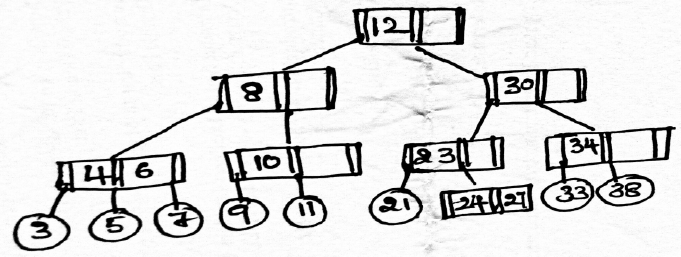 12
8 30
4 6 10 23 34
3 5 7 9 11 21 24 27 33 38